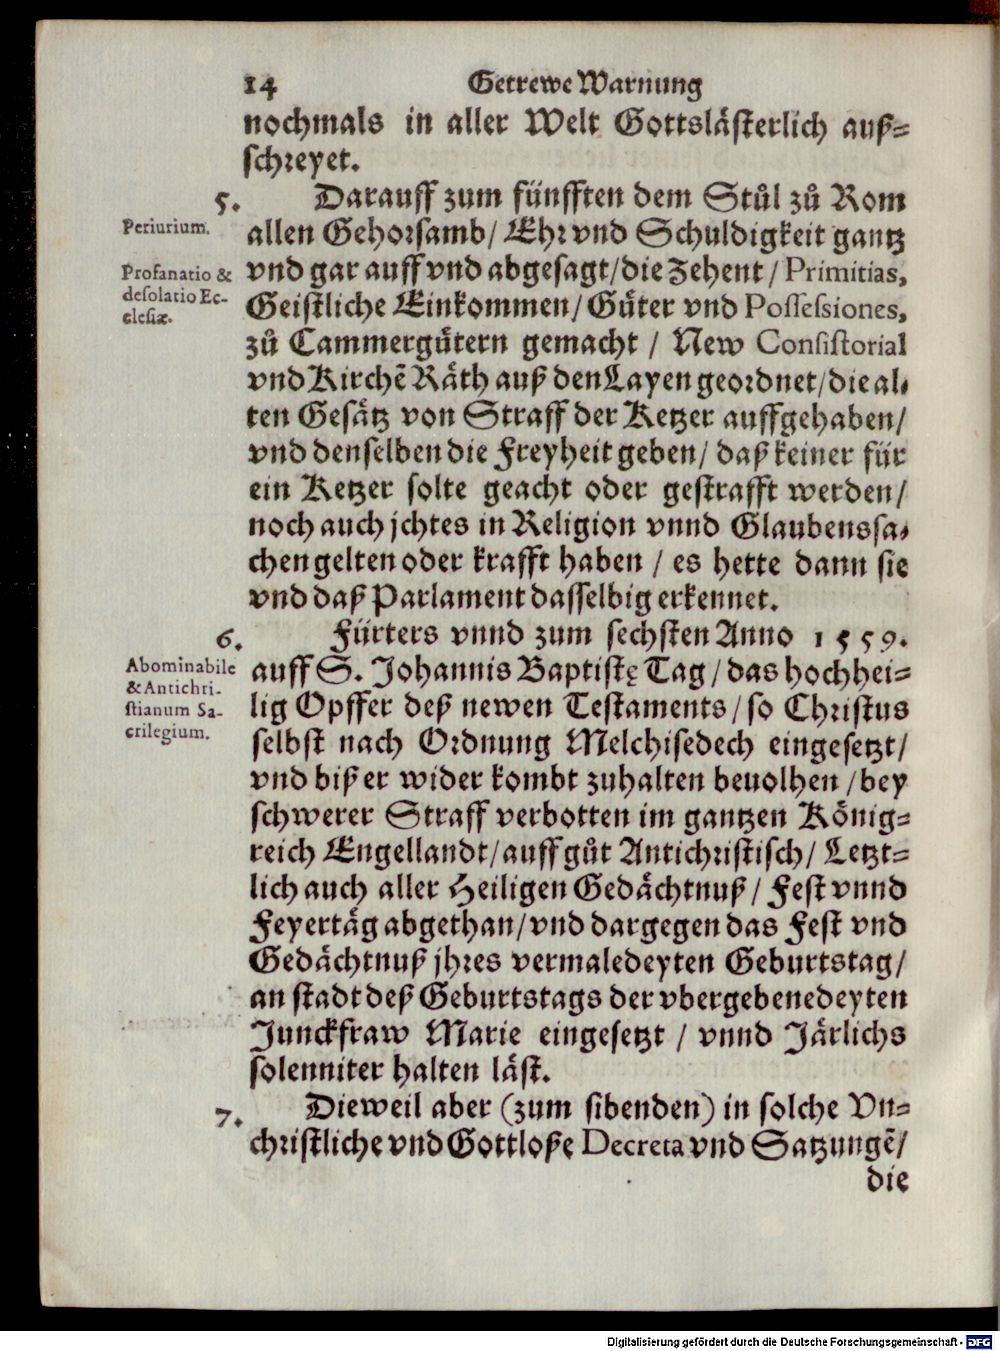 14 Getrewe Warnung
nochmals in aller Welt Gottslästerlich auß-
schreyet.
5. Darauff zum fünfften dem Stůl zů Rom
Periurium. allen Gehorsamb/ Ehr vnd Schuldigkeit gantz
Profanatio & vnd gar auff vnd abgesagt/die Zehent/ Primitias,
desolatio Ec- Geistliche Einkommen/ Gůter vnd Possessiones,
clesiæ. zů Cammergůtern gemacht / New Consistorial
vnd Kirchẽ Räth auß den Layen geordnet/die al-
ten Gesätz von Straff der Ketzer auffgehaben/
vnd denselben die Freyheit geben/ daß keiner für
ein Ketzer solte geacht oder gestrafft werden/
noch auch jchtes in Religion vnnd Glaubenssa-
chen gelten oder krafft haben / es hette dann sie
vnd daß Parlament dasselbig erkennet.
6. Fürters vnnd zum sechsten Anno 1559.
Abominabile auff S. Johannis Baptistę Tag/das hochhei-
& Antichri- lig Opffer deß newen Testaments/so Christus
stianum Sa- selbst nach Ordnung Melchisedech eingesetzt/
crilegium. vnd biß er wider kombt zuhalten beuolhen /bey
schwerer Straff verbotten im gantzen König-
reich Engellandt/auff gůt Antichristisch/ Letzt-
lich auch aller Heiligen Gedächtnuß/ Fest vnnd
Feyertäg abgethan/vnd dargegen das Fest vnd
Gedächtnuß jhres vermaledeyten Geburtstag/
an stadt deß Geburtstags der vbergebenedeyten
Junckfraw Marie eingesetzt / vnnd Järlichs
solenniter halten läst.
7. Dieweil aber (zum sibenden) in solche Vn-
christliche vnd Gottloße Decreta vnd Satzungẽ/
die
Digitalisierung gefördert durch die Deutsche Forschungsgemeinschaft - DFG